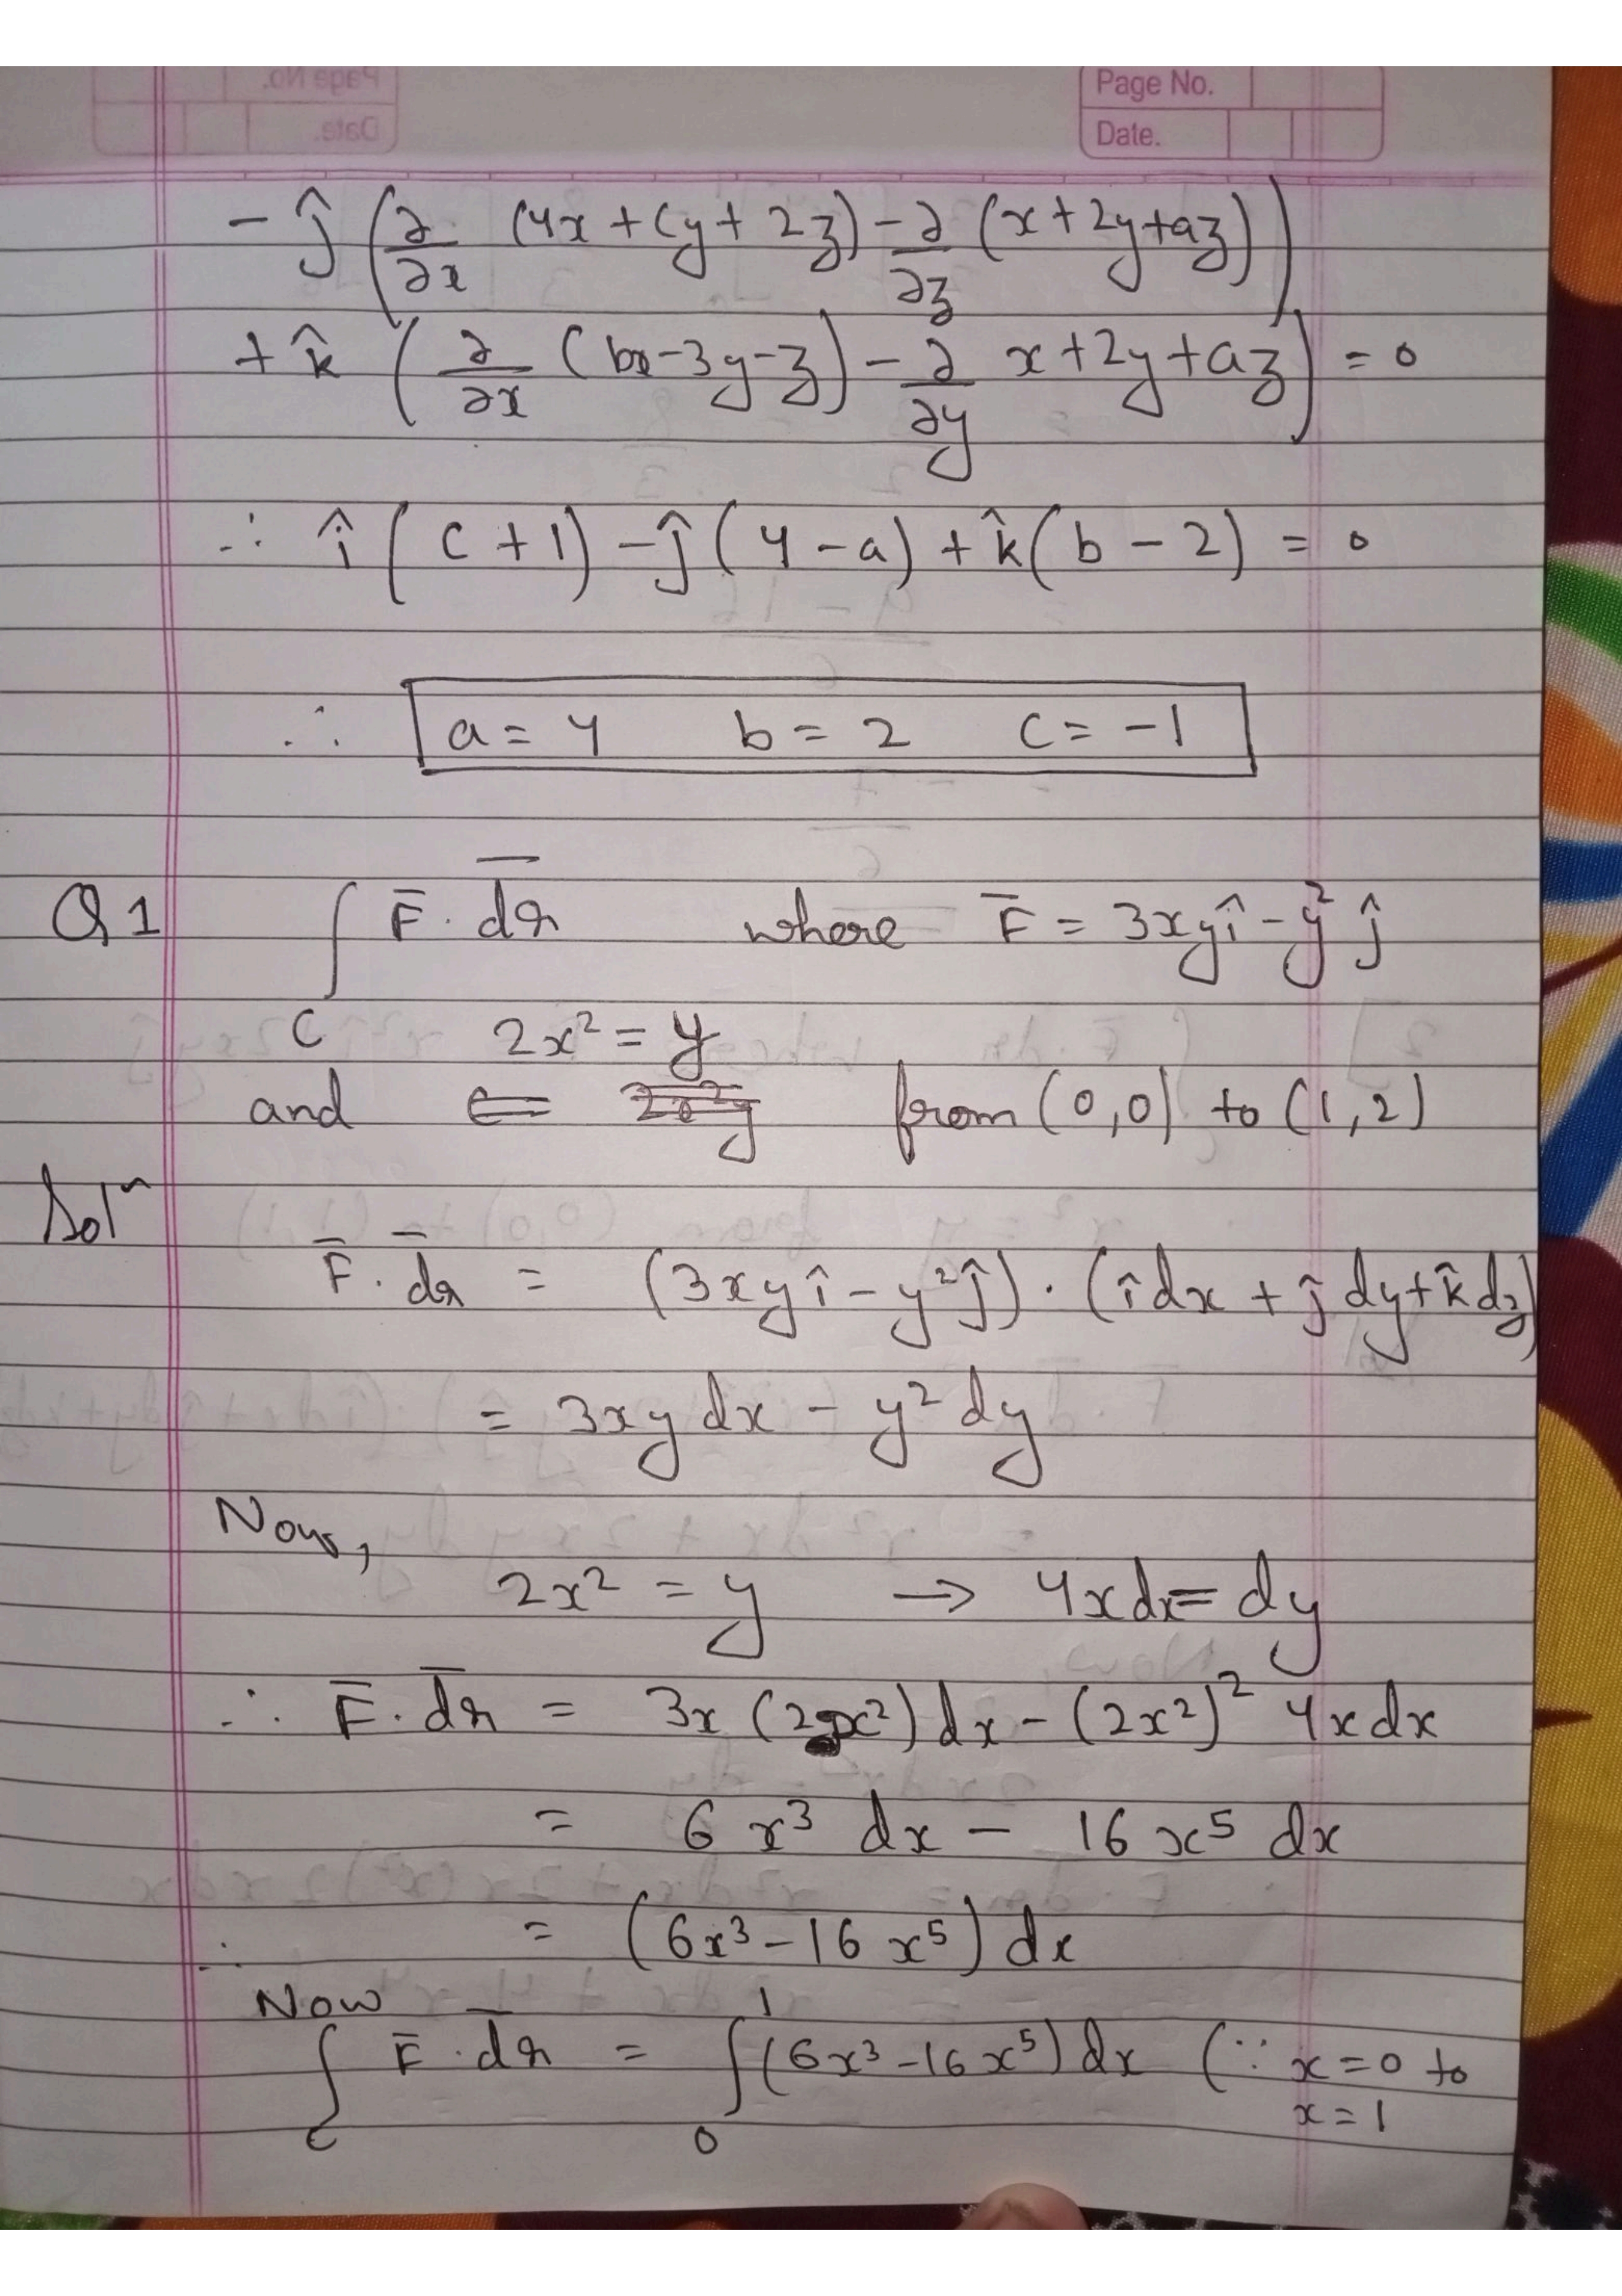 Page No.
Date.
- ĵ (∂/∂x (4x + cy + 2z) - ∂/∂z (x + 2y + az))
+ k̂ (∂/∂x (bx - 3y - z) - ∂/∂y x + 2y + az) = 0
∴ î (c + 1) - ĵ (4 - a) + k̂ (b - 2) = 0
∴ a = 4 b = 2 c = -1
Q1 ∫ F̄ . dr̄ where F̄ = 3xyî - y² ĵ
C 2x² = y
and from (0,0) to (1,2)
Solⁿ
F̄ . dr̄ = (3xyî - y²ĵ) . (îdx + ĵdy + k̂dz)
= 3xy dx - y² dy
Now,
2x² = y → 4xdx = dy
∴ F̄ . dr̄ = 3x (2x²) dx - (2x²)² 4x dx
= 6 x³ dx - 16 x⁵ dx
∴ = (6x³ - 16 x⁵) dx
Now
∫_C F̄ . dr̄ = ∫₀¹ (6x³ - 16x⁵) dx (∵ x = 0 to
x = 1